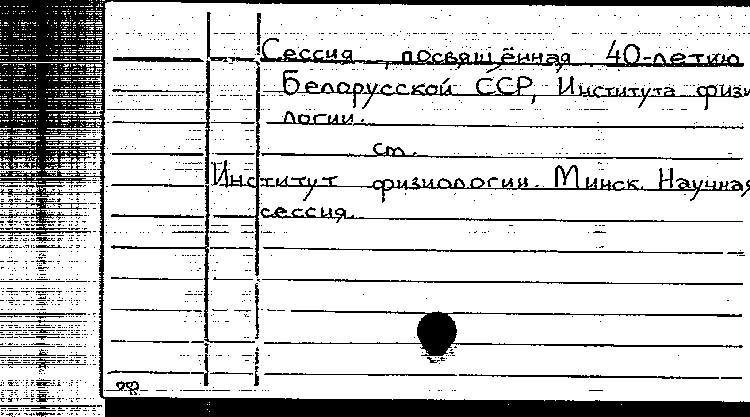 Сессия, посвящённая 40-летию
Белорусской ССР, Института физи
логии.
см.
Институт физиологии. Минск. Научная
сессия.